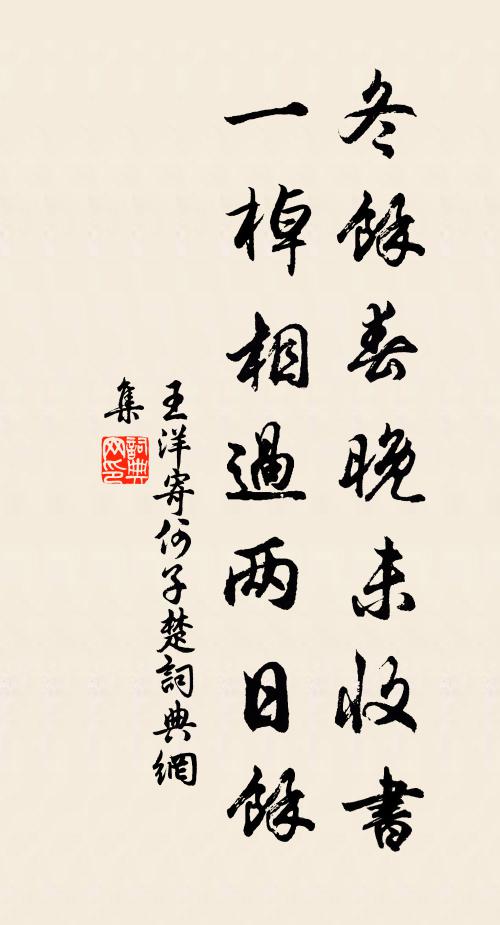 冬餘春晚未收書
一棹相過两日餘
王洋寄何子楚詞典網
集
詞典
网印